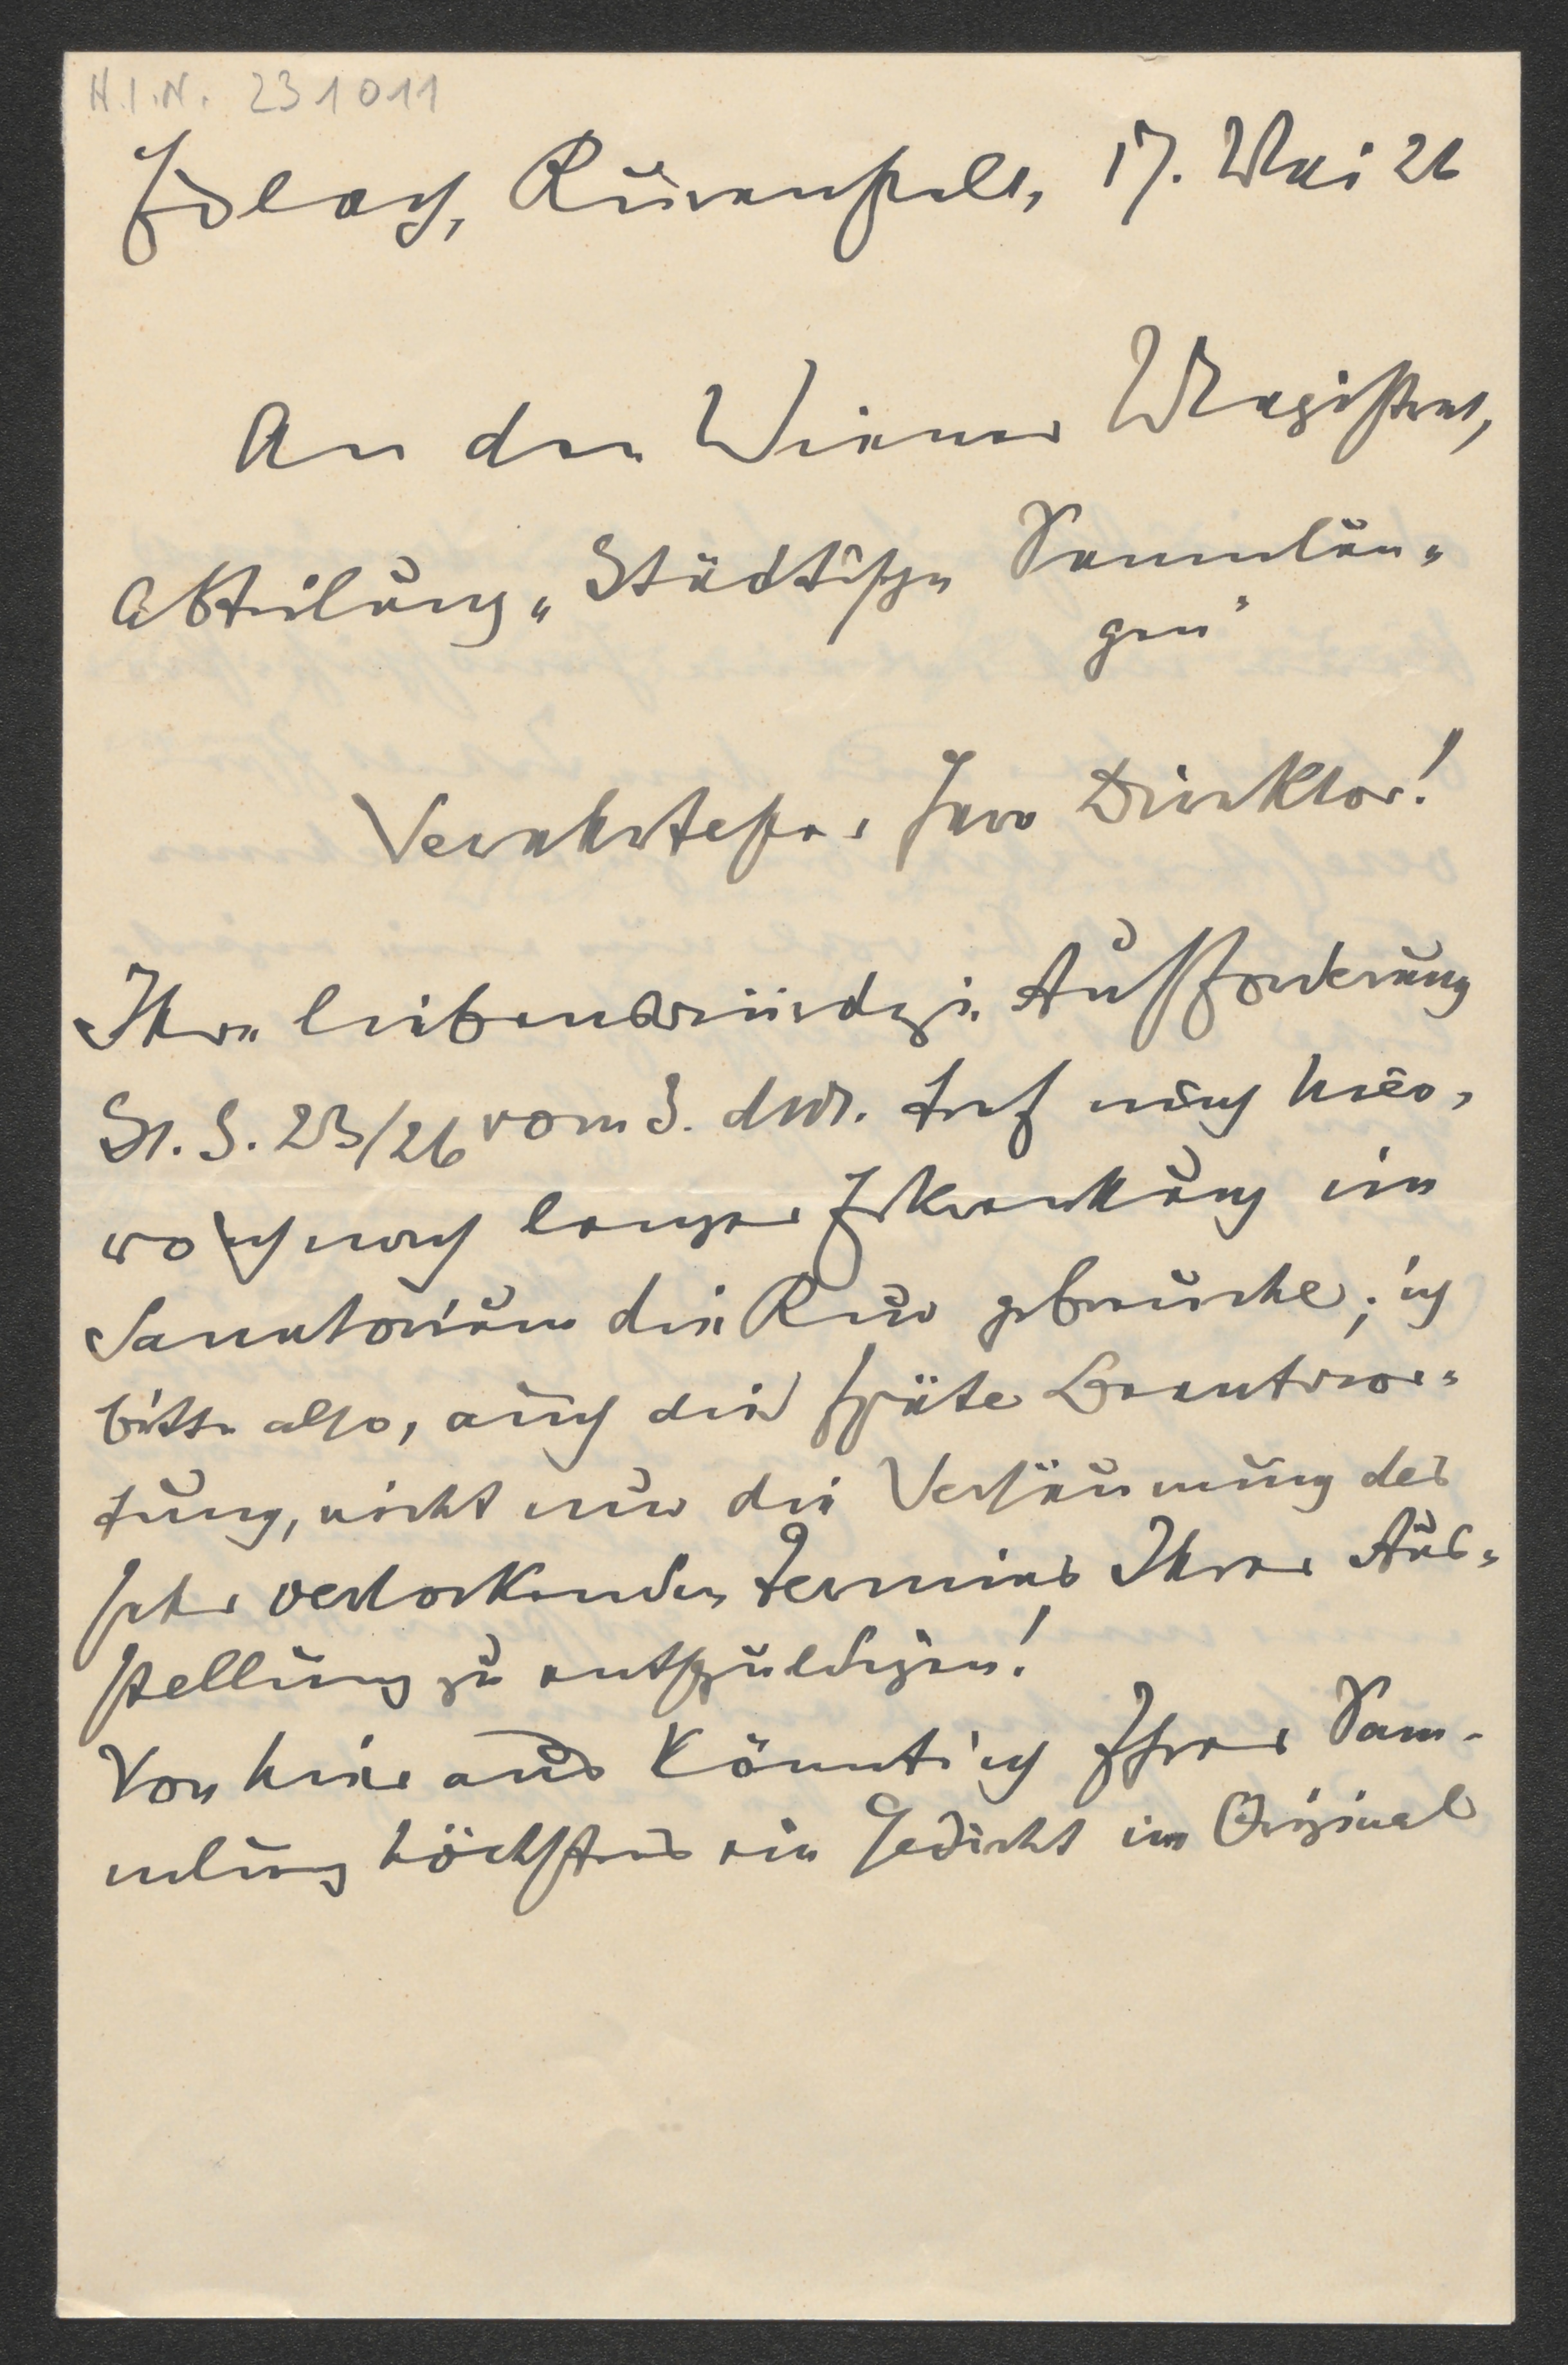 H.I.N. 231011
Edlach, Kuranstalt, 17. Mai 26
An den Wiener Magistrat,
Abteilung „Städtische Sammlun-
gen"
Verehrtester Herr Direktor!
Ihre liebenswürdige Aufforderung
St. S. 23/26 vom 3. dM. traf mich hier,
wo ich nach langer Erkrankung im
Sanatorium die Kur gebrauche; ich
bitte also, auch die späte Beantwor-
tung, nicht nur die Versäumung des
sehr verlockenden Termins Ihrer Aus-
stellung zu entschuldigen!
Von hier aus könnte ich Ihrer Sam-
mlung höchstens ein Gedicht im Original